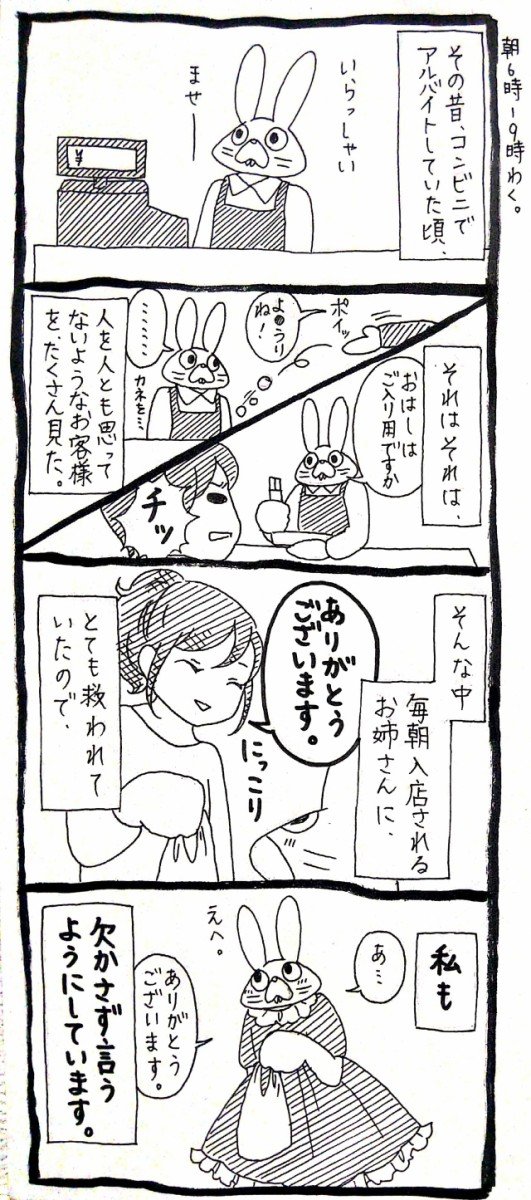 朝6時-9時わく。
その昔、コンビニで
アルバイトしていた頃、
いらっしゃい
ませー
¥
それはそれは、
おはしは
ご入り用ですか
チッ
ポイッ
よ●うり
ね！
カネを…
………
人を人とも思って
ないようなお客様
を、たくさん見た。
そんな中
毎朝入店される
お姉さんに、
ありがとう
ございます。
にっこり
とても救われて
いたので、
私も
あ…
えへ。
ありがとう
ございます。
欠かさず言う
ようにしています。